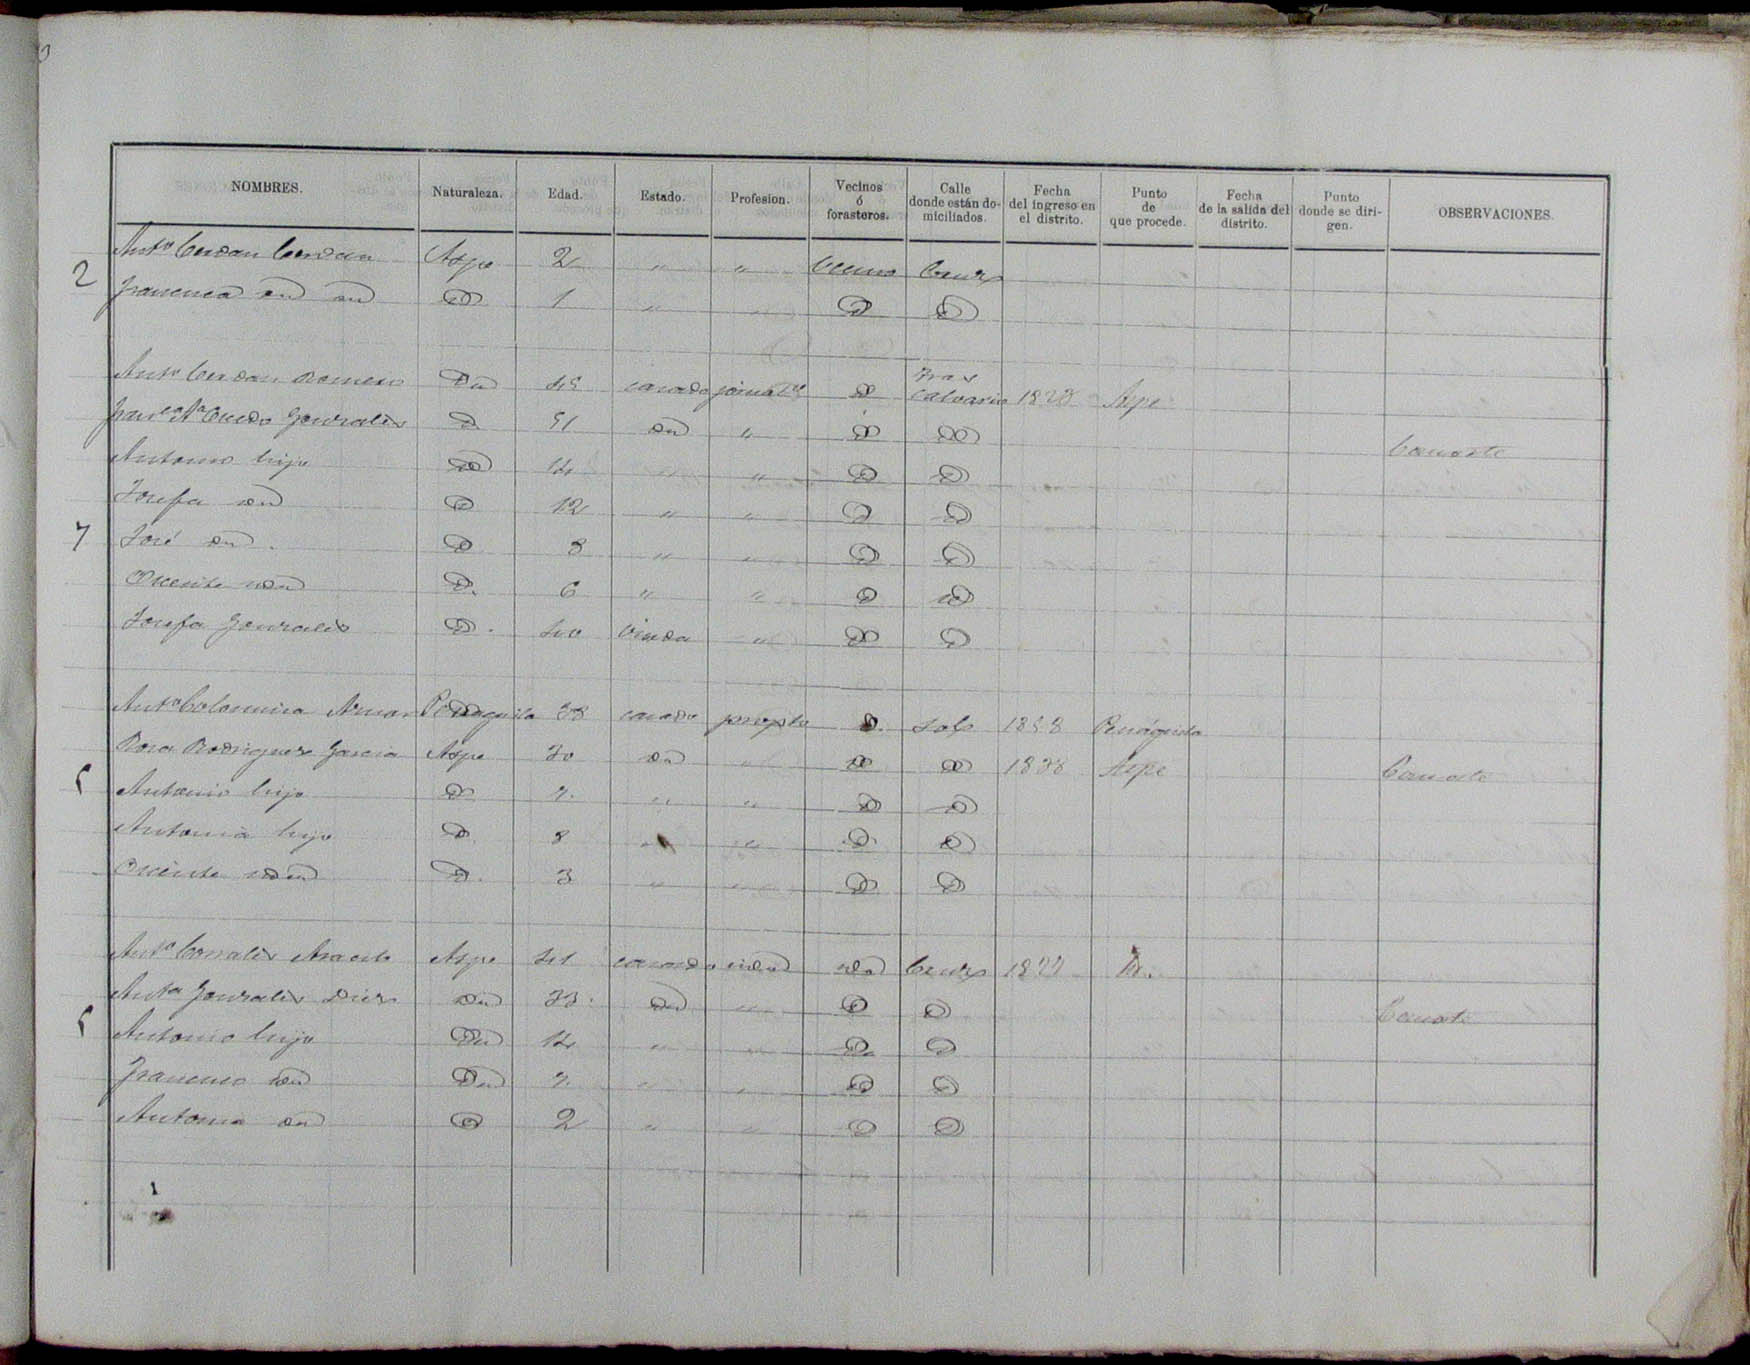 NOMBRES. Naturaleza. Edad. Estado. Profesion. Vecinos ó forasteros. Calle donde están domiciliados. Fecha del ingreso en el distrito. Punto de que procede. Fecha de la salida del distrito. Punto donde se dirigen. OBSERVACIONES.
Antº Cerdan Cerdan Aspe 2 " " Vecino Cruz
2
Francisca id id id 1 " " id id
Antº Cerdan Romero id 45 casado jornalº id Tras Calvario 1828 Aspe
Gonzales id 51 id " id id Consorte
Antonio hijo id 14 " " id id
Josefa id id 12 " " id id
7 José id id 8 " " id id
Vicente id id 6 " " id id
Josefa Gonzales id 40 Viuda " id id
Antº Colomina Penaguila 38 casado id Sol 1858 Penáguila
Rosa Rodriguez Garcia Aspe 30 id " id id 1838 Aspe Consorte
5 Antonio hijo id 7 " " id id
Antonia hija id 8 " " id id
Vicente id id 3 " " id id
Antº Corrales Aspe 41 casado id id Cruz 1827 id
Antª Gonzales Diez id 33 id " id id Consorte
5 Antonio hijo id 14 " " id id
Francisco id id 7 " " id id
Antonia id id 2 " " id id